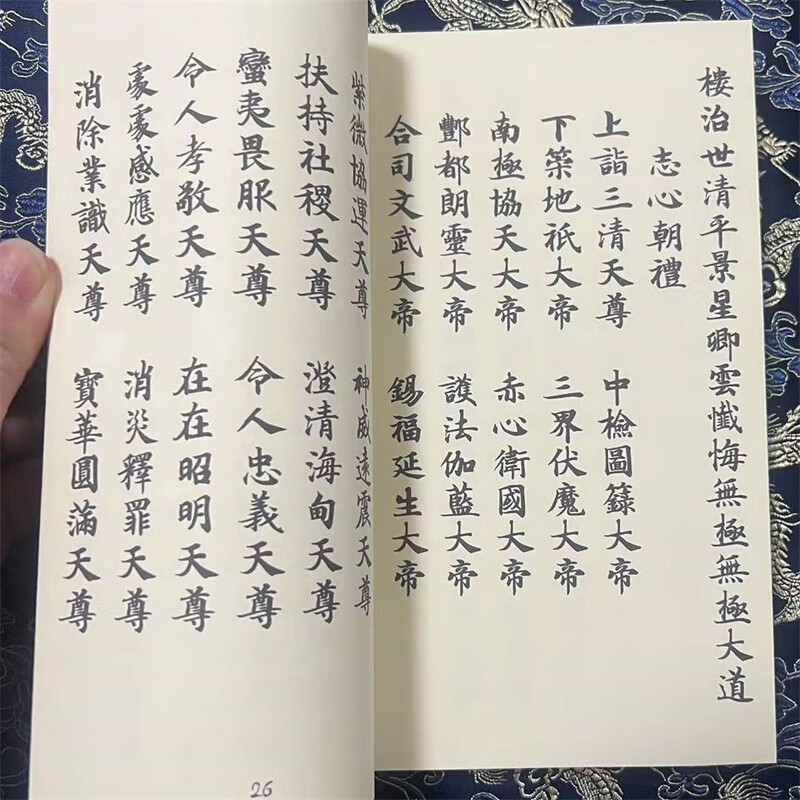 樓治世清平景星卿雲懺悔無極無極大道
志心朝禮
上詣三清天尊 中檢圖籙大帝
下築地祇大帝 三界伏魔大帝
南極協天大帝 赤心衛國大帝
酆都朗靈大帝 護法伽藍大帝
合司文武大帝 錫福延生大帝
紫微協運天尊 神威遠震天尊
扶持社稷天尊 澄清海甸天尊
蠻夷畏服天尊 令人忠義天尊
令人孝敬天尊 在在昭明天尊
處處感應天尊 消災釋罪天尊
消除業識天尊 寶華圓滿天尊
26